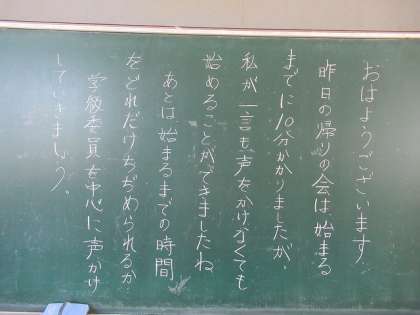 おはようございます!
昨日の帰りの会は、始まる
までに10分かかりましたが、
私が一言も声をかけなくても
始めることができましたね
あとは始まるまでの時間
をどれだけちぢめられるか…
学級委員を中心に声かけ
していきましょう。